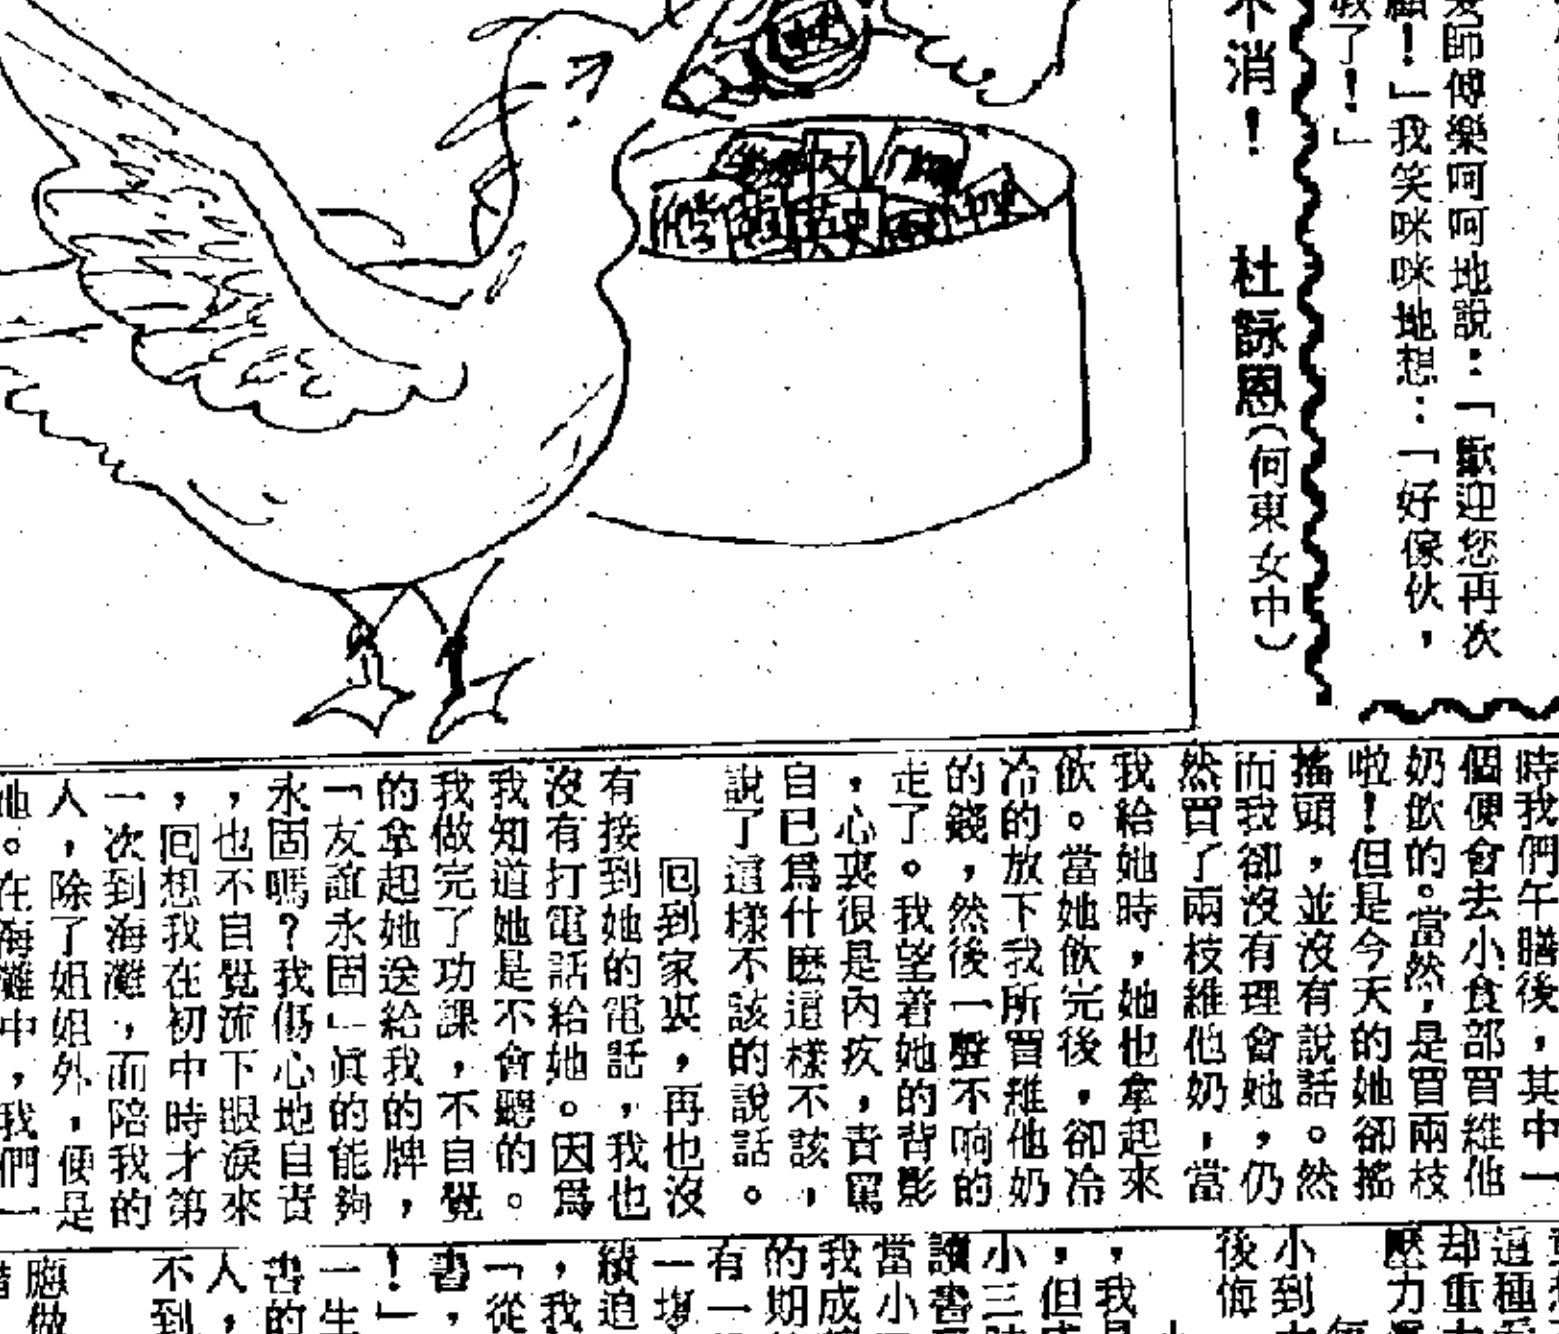 師傅樂呵呵地說：「歡迎您再次
顧！」我笑咪咪地想：「好傢伙，
我了！」
不消！　杜詠恩（何東女中）
時我們午膳後，其中一
個便會去小食部買維他
奶飲的。當然，是買兩枝
啦！但是今天的她卻搖
搖頭，並沒有說話。然
而我卻沒有理會她，仍
然買了兩枝維他奶，當
我給她時，她也拿起來
飲。當她飲完後，卻冷
冷的放下我所買維他奶
的錢，然後一聲不响的
走了。我望着她的背影
，心裏很是內疚，責罵
自己爲什麽這樣不該，
說了這樣不該的說話。
回到家裏，再也沒
有接到她的電話，我也
沒有打電話給她。因爲
我知道她是不會聽的。
我做完了功課，不自覺
的拿起她送給我的牌，
「友誼永固」眞的能夠
永固嗎？我傷心地自責
，也不自覺流下眼淚來
，回想我在初中時才第
一次到海灘，而陪我的
人，除了姐姐外，便是
她。在海灘中，我們一
這種
却重
壓力
小到
後悔
，我
，但
小三
讀書
當小
我成
的期
有一
一塲
績追
，我
「從
書，
！」
一生
書的
人，
不到
應做